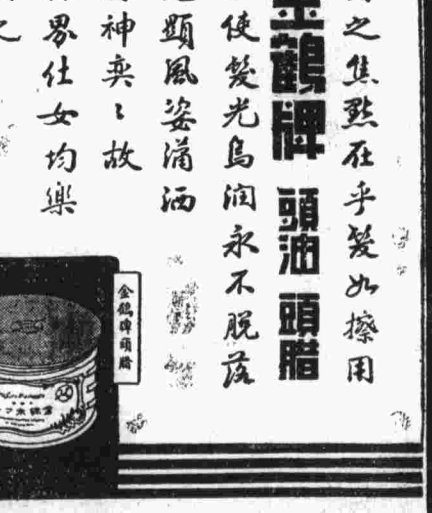 之焦點在乎髮如擦用
金鶴牌 頭油 頭腊
使髮光烏潤永不脫落
顯風姿瀟洒
神奕〻故
界仕女均樂
之
金鶴牌頭腊